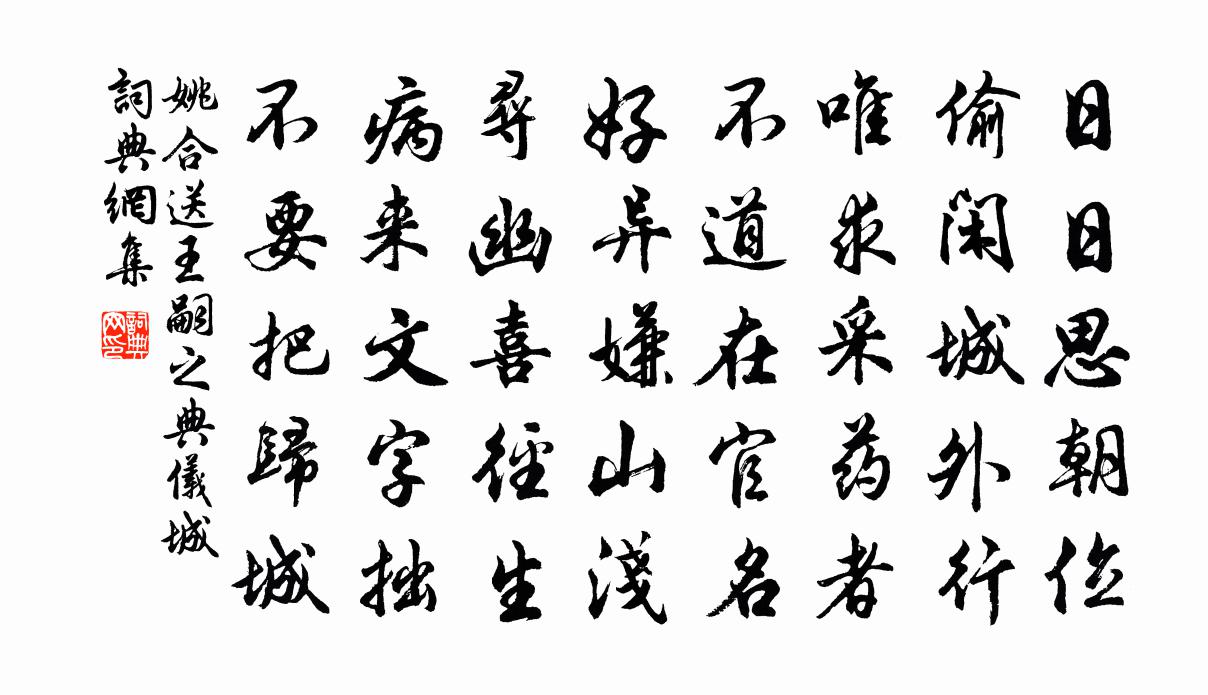 日日思朝位
偷闲城外行
唯求采药者
不道在官名
好异嫌山淺
尋幽喜徑生
病来文字拙
不要把歸城
姚合送王嗣之典儀城
詞典網集
詞典
网印